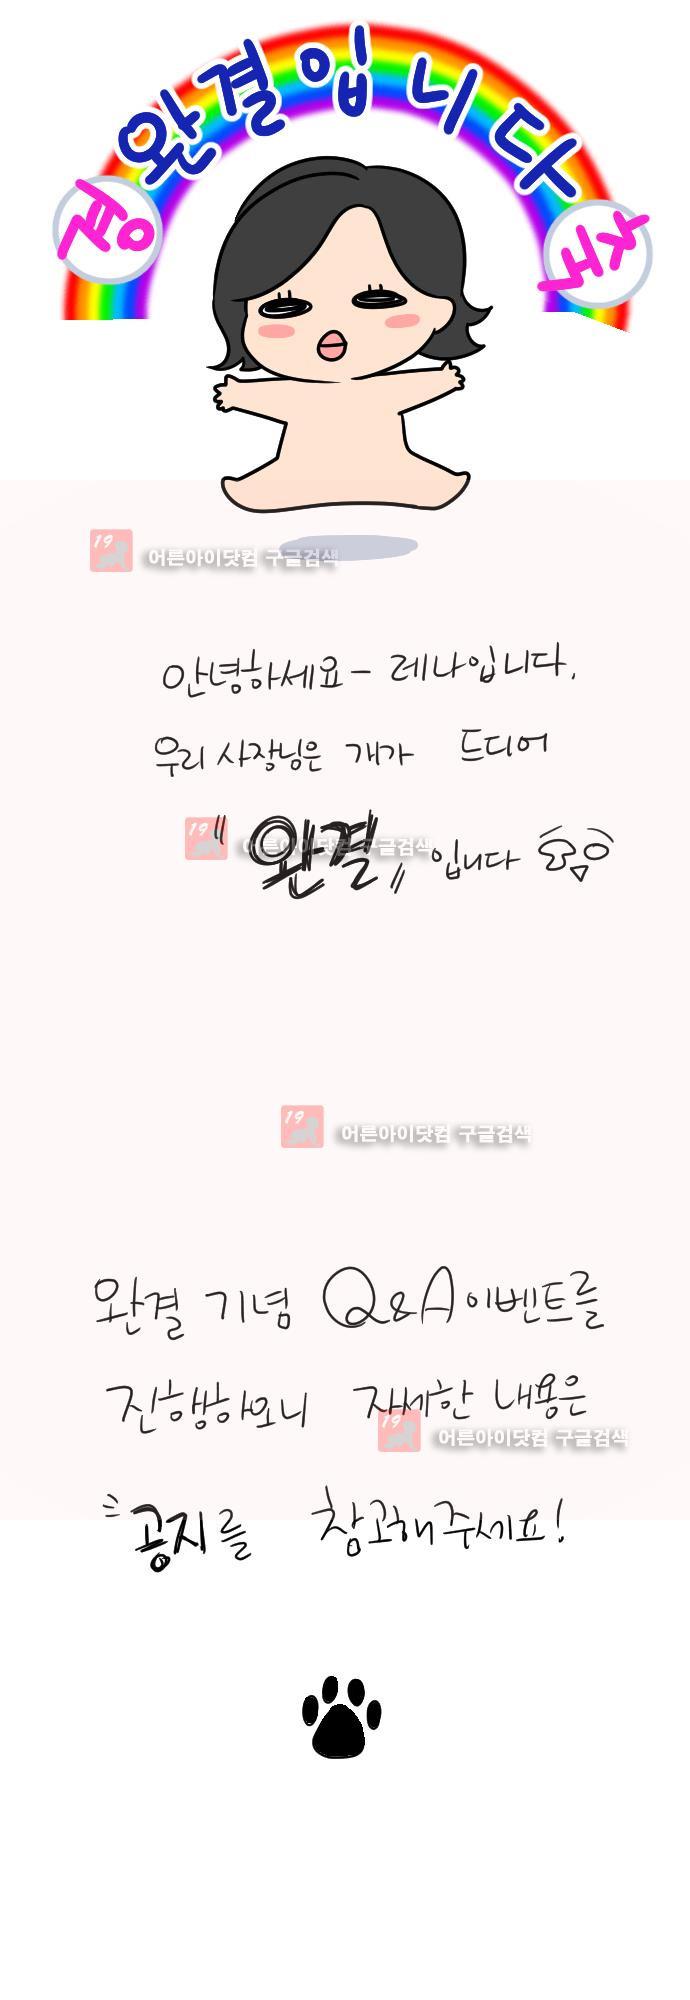 완결입니다
경
축
19 어른아이닷컴 구글검색
안녕하세요- 레나입니다.
우리 사장님은 개가 드디어
"완결" 입니다
19 어른아이닷컴 구글검색
19 어른아이닷컴 구글검색
완결 기념 Q&A이벤트를
진행하오니 자세한 내용은
19 어른아이닷컴 구글검색
공지를 참고해주세요!